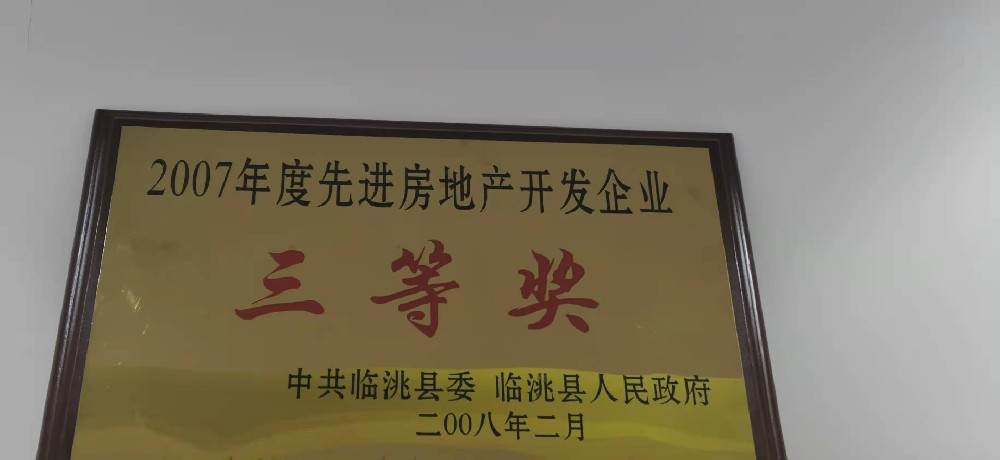 2007年度先进房地产开发企业
三等奖
中共临洮县委 临洮县人民政府
二00八年二月